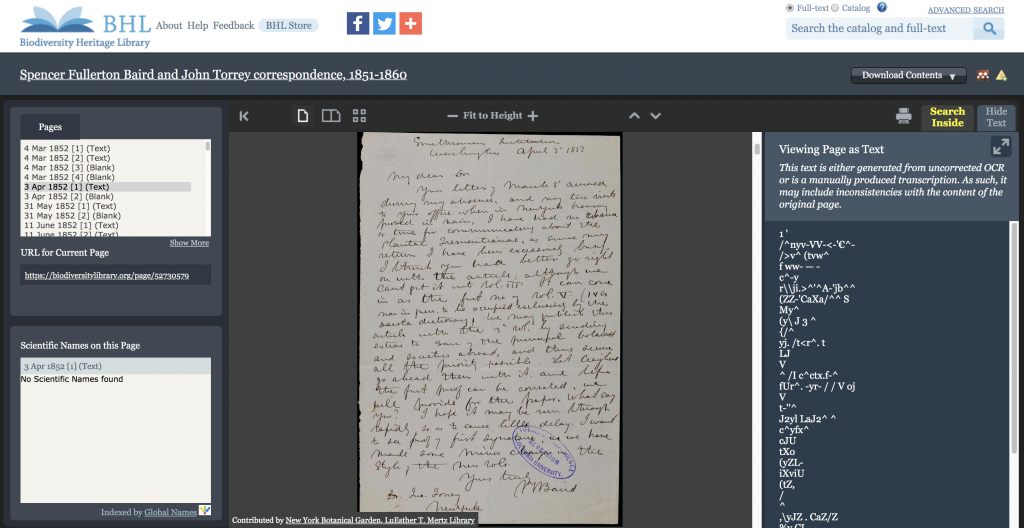 BHL
Biodiversity Heritage Library
About Help Feedback BHL Store
Full-text Catalog ?
ADVANCED SEARCH
Search the catalog and full-text
Spencer Fullerton Baird and John Torrey correspondence, 1851-1860
Download Contents
Pages
4 Mar 1852 [1] (Text)
4 Mar 1852 [2] (Text)
4 Mar 1852 [3] (Blank)
4 Mar 1852 [4] (Blank)
3 Apr 1852 [1] (Text)
3 Apr 1852 [2] (Blank)
31 May 1852 [1] (Text)
31 May 1852 [2] (Blank)
11 June 1852 [1] (Text)
11 June 1852 [2] (Text)
Show More
URL for Current Page
https://biodiversitylibrary.org/page/52730579
Scientific Names on this Page
3 Apr 1852 [1] (Text)
No Scientific Names found
Indexed by Global Names
Fit to Height
Smithsonian Institution
Washington April 3 1852
My dear Sir
Your letter of March 8 arrived
during my absence, and my two visits
to your office when in New York having
proved in vain, I have had no
time for communicating about the
Plantae Fremontianae, as since my
return I have been excessively busy
I think you had better go right
on with the article, although we
can't get it into Vol. III. It can come
in as the first no of Vol. V (IV
being to be occupied exclusively by the
Dacota dictionary) We may publish this
article with the 3d vol. by sending
extras to some of the principal botanists
and societies abroad, and thus secure
all the priority possible. Let Craighead
go ahead then with it, and
the first proof can be corrected. We
will provide for the paper. What say
you? I hope it may be run through
rapidly, so as to cause little delay. I want
to see proof of first signature as we have
made some minor changes in the
style, the new vols.
Yours truly
S F Baird
Dr. Jno. Torrey
New York
Contributed by New York Botanical Garden, LuEsther T. Mertz Library
Search Inside
Hide Text
Viewing Page as Text
This text is either generated from uncorrected OCR
or is a manually produced transcription. As such, it
may include inconsistencies with the content of the
original page.
1 '
/^nyv-VV-<-'€^-
/>v^ (tvw^
f ww- — -
c^-y
r\\ji.>^'^A-'jb^^
(ZZ-'CaXa/^^ S
My^
(y\ J 3 ^
{/^
yj. /t<r^. t
LJ
V
^ /I c^ctx.f-^
fUr^. -yr- / / V oj
V
t-"^
J2yl LaJ2^ ^
c^yfx^
cJU
tXo
(yZL-
iXviU
(tZ,
/
^
,\yJZ . CaZ/Z